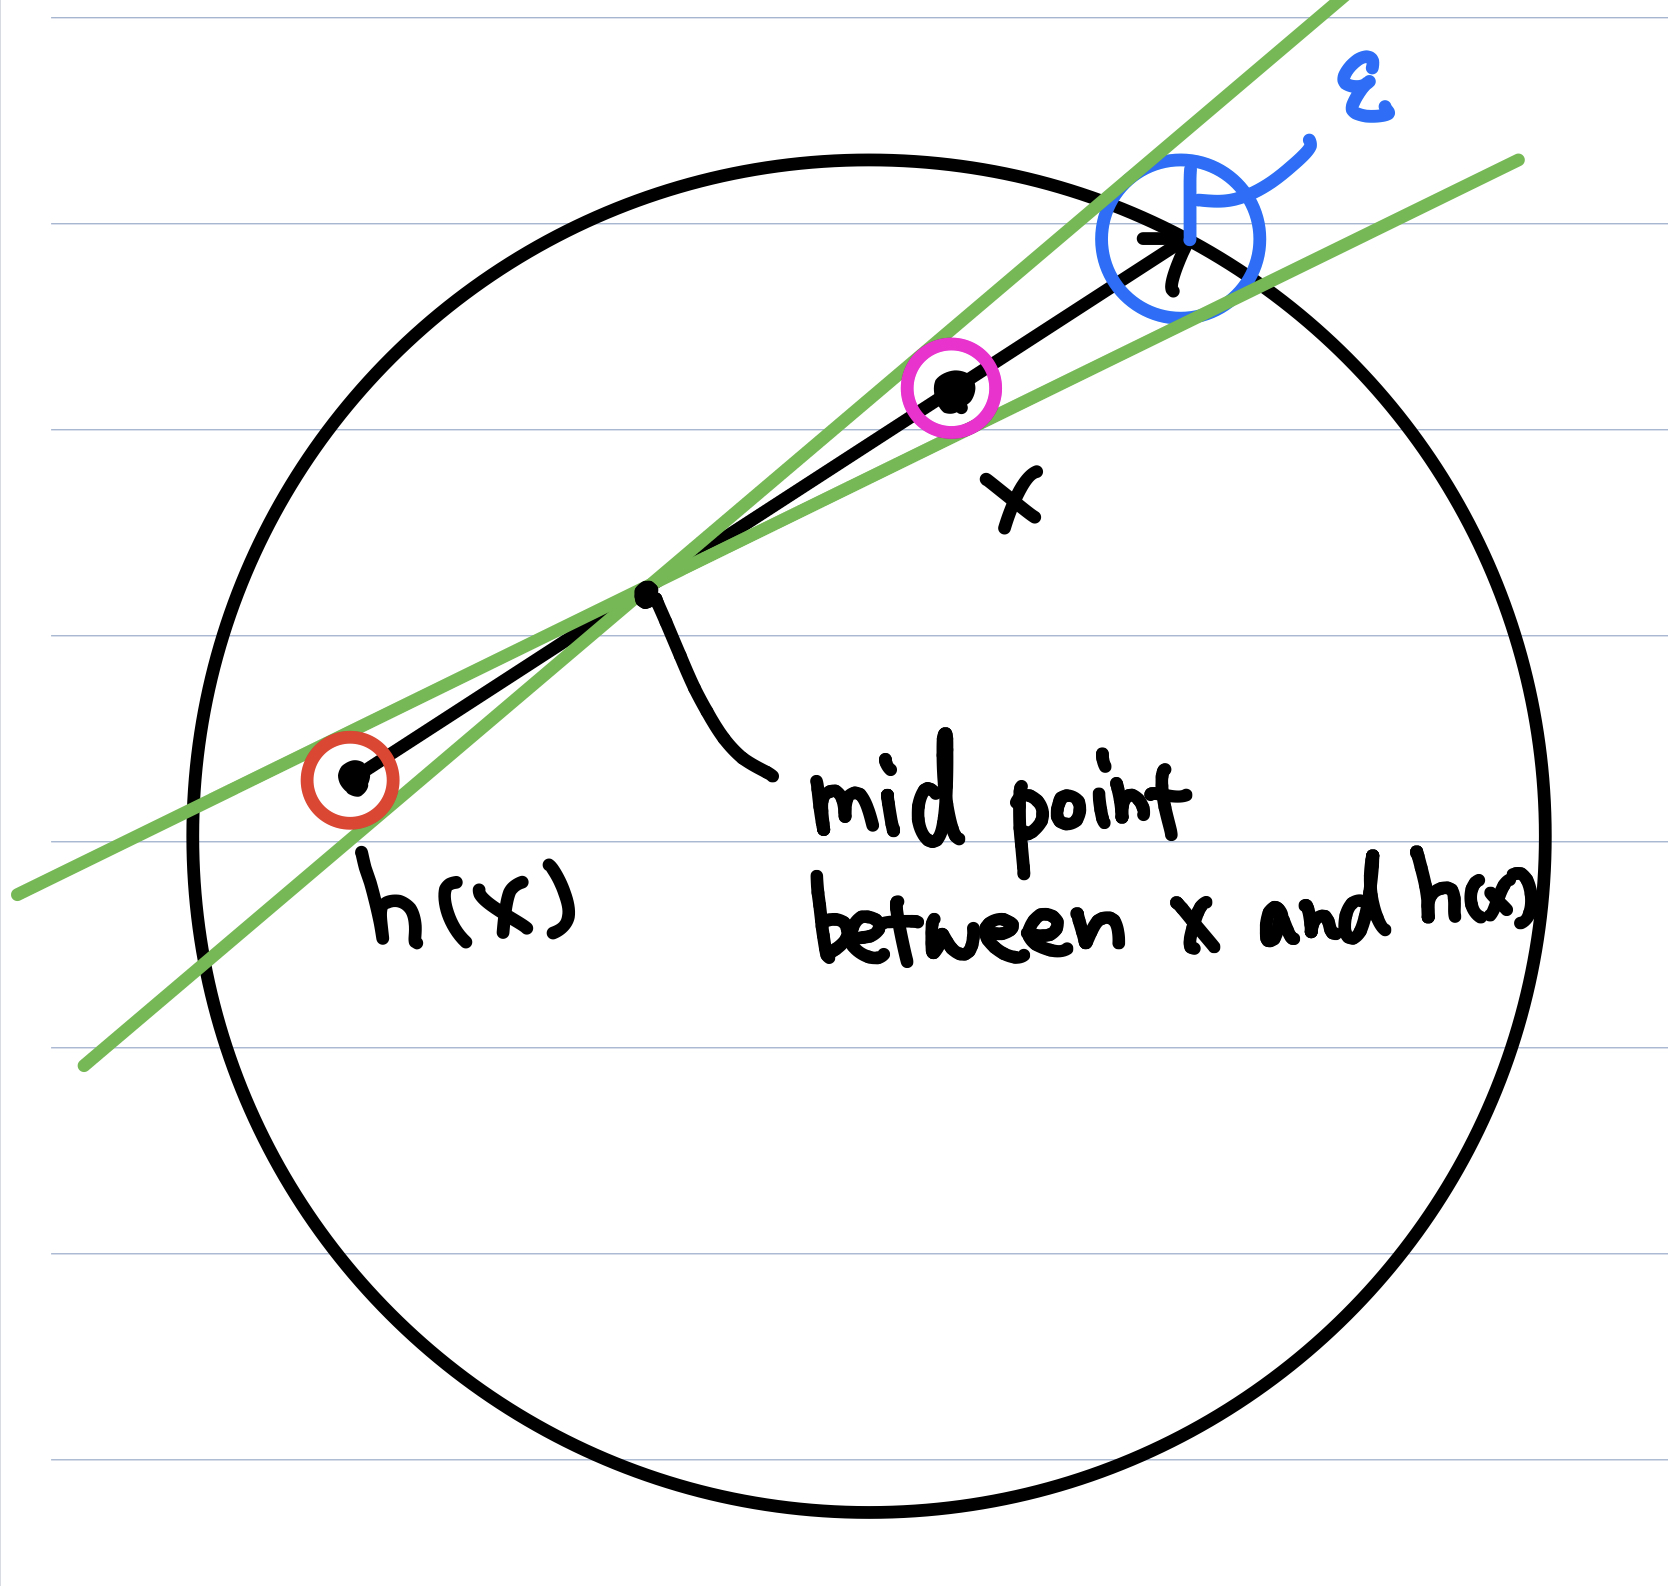 ε
x
h(x)
mid point
between x and h(x)